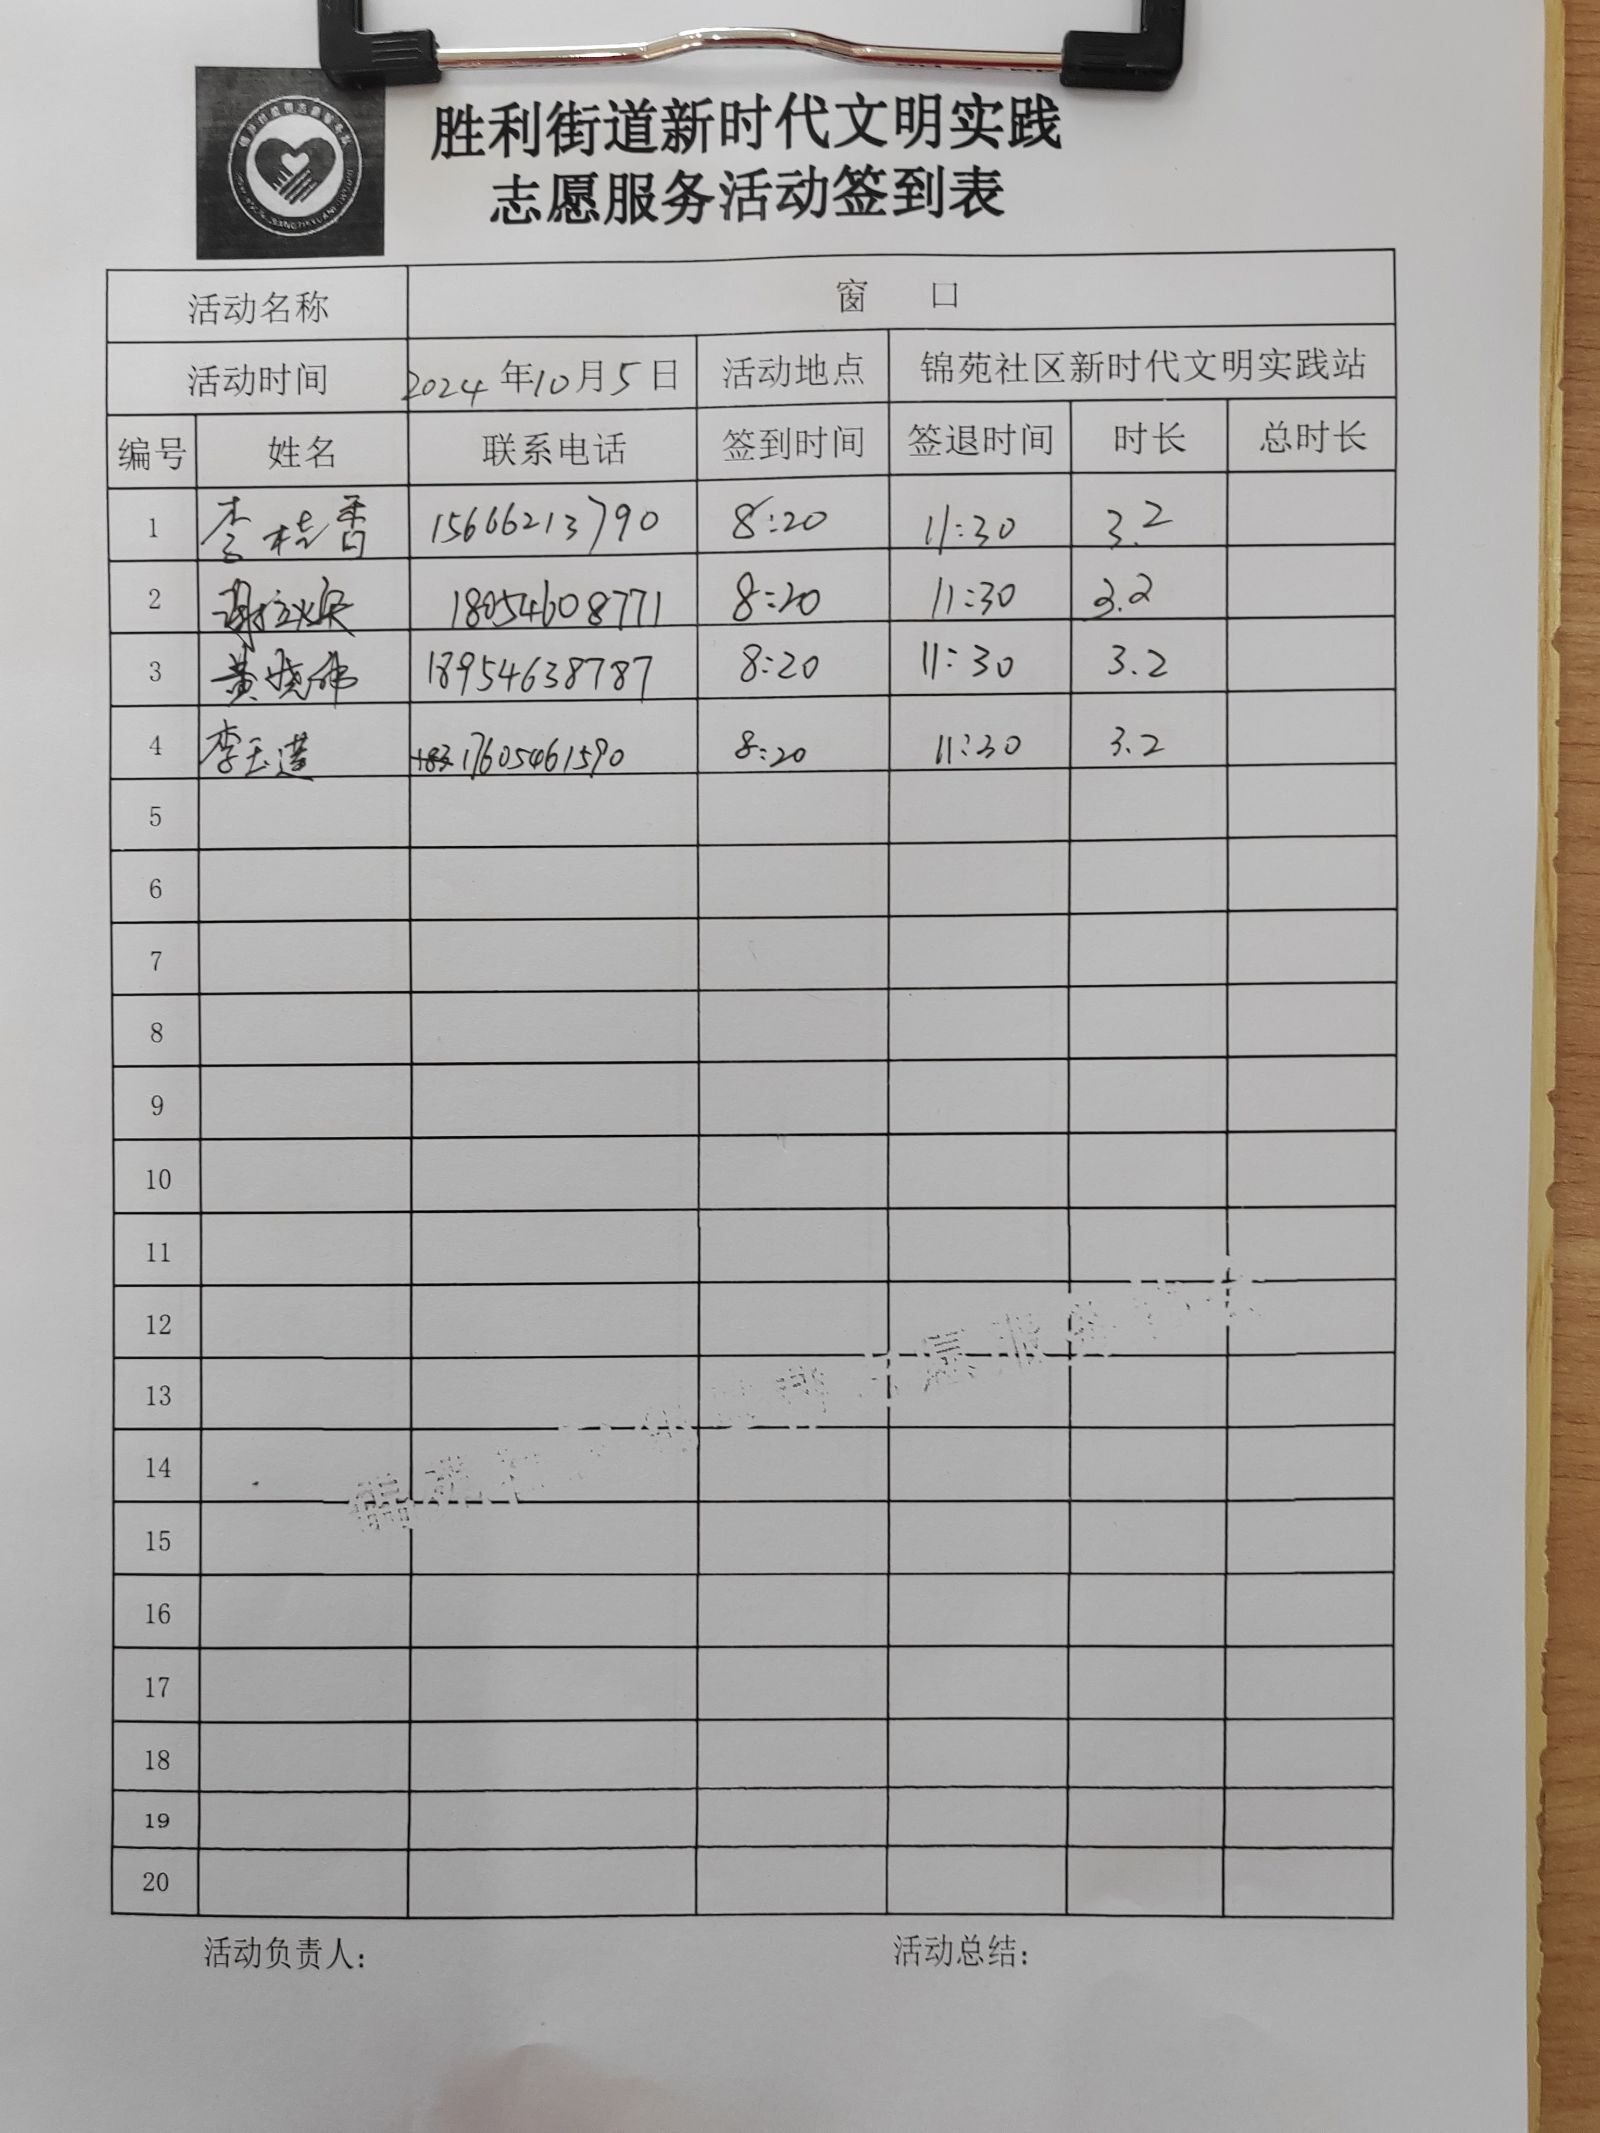 胜利街道新时代文明实践
志愿服务活动签到表
活动名称 窗 口
活动时间 2024年10月5日 活动地点 锦苑社区新时代文明实践站
编号 姓名 联系电话 签到时间 签退时间 时长 总时长
1 李桂香 15666213790 8:20 11:30 3.2
2 18054608771 8:20 11:30 3.2
3 黄晓伟 18954638787 8:20 11:30 3.2
4 李玉莲 17605461590 8:20 11:30 3.2
5
6
7
8
9
10
11
12
13
14
15
16
17
18
19
20
活动负责人: 活动总结: